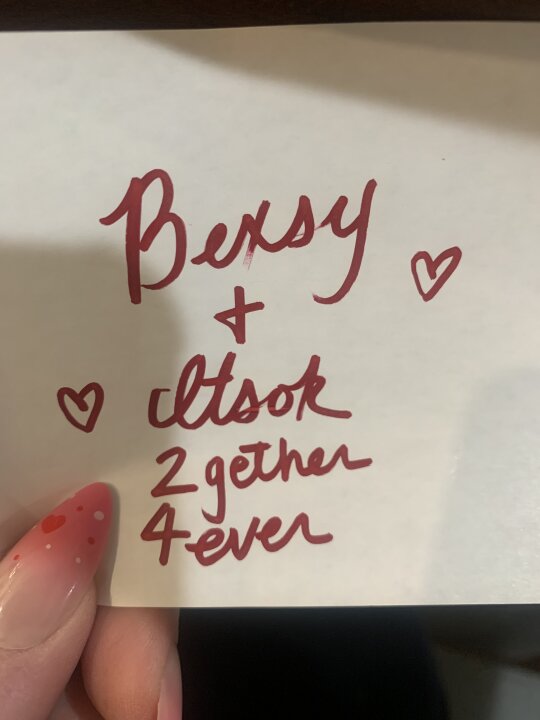 Bexsy
+
Itsok
2gether
4ever